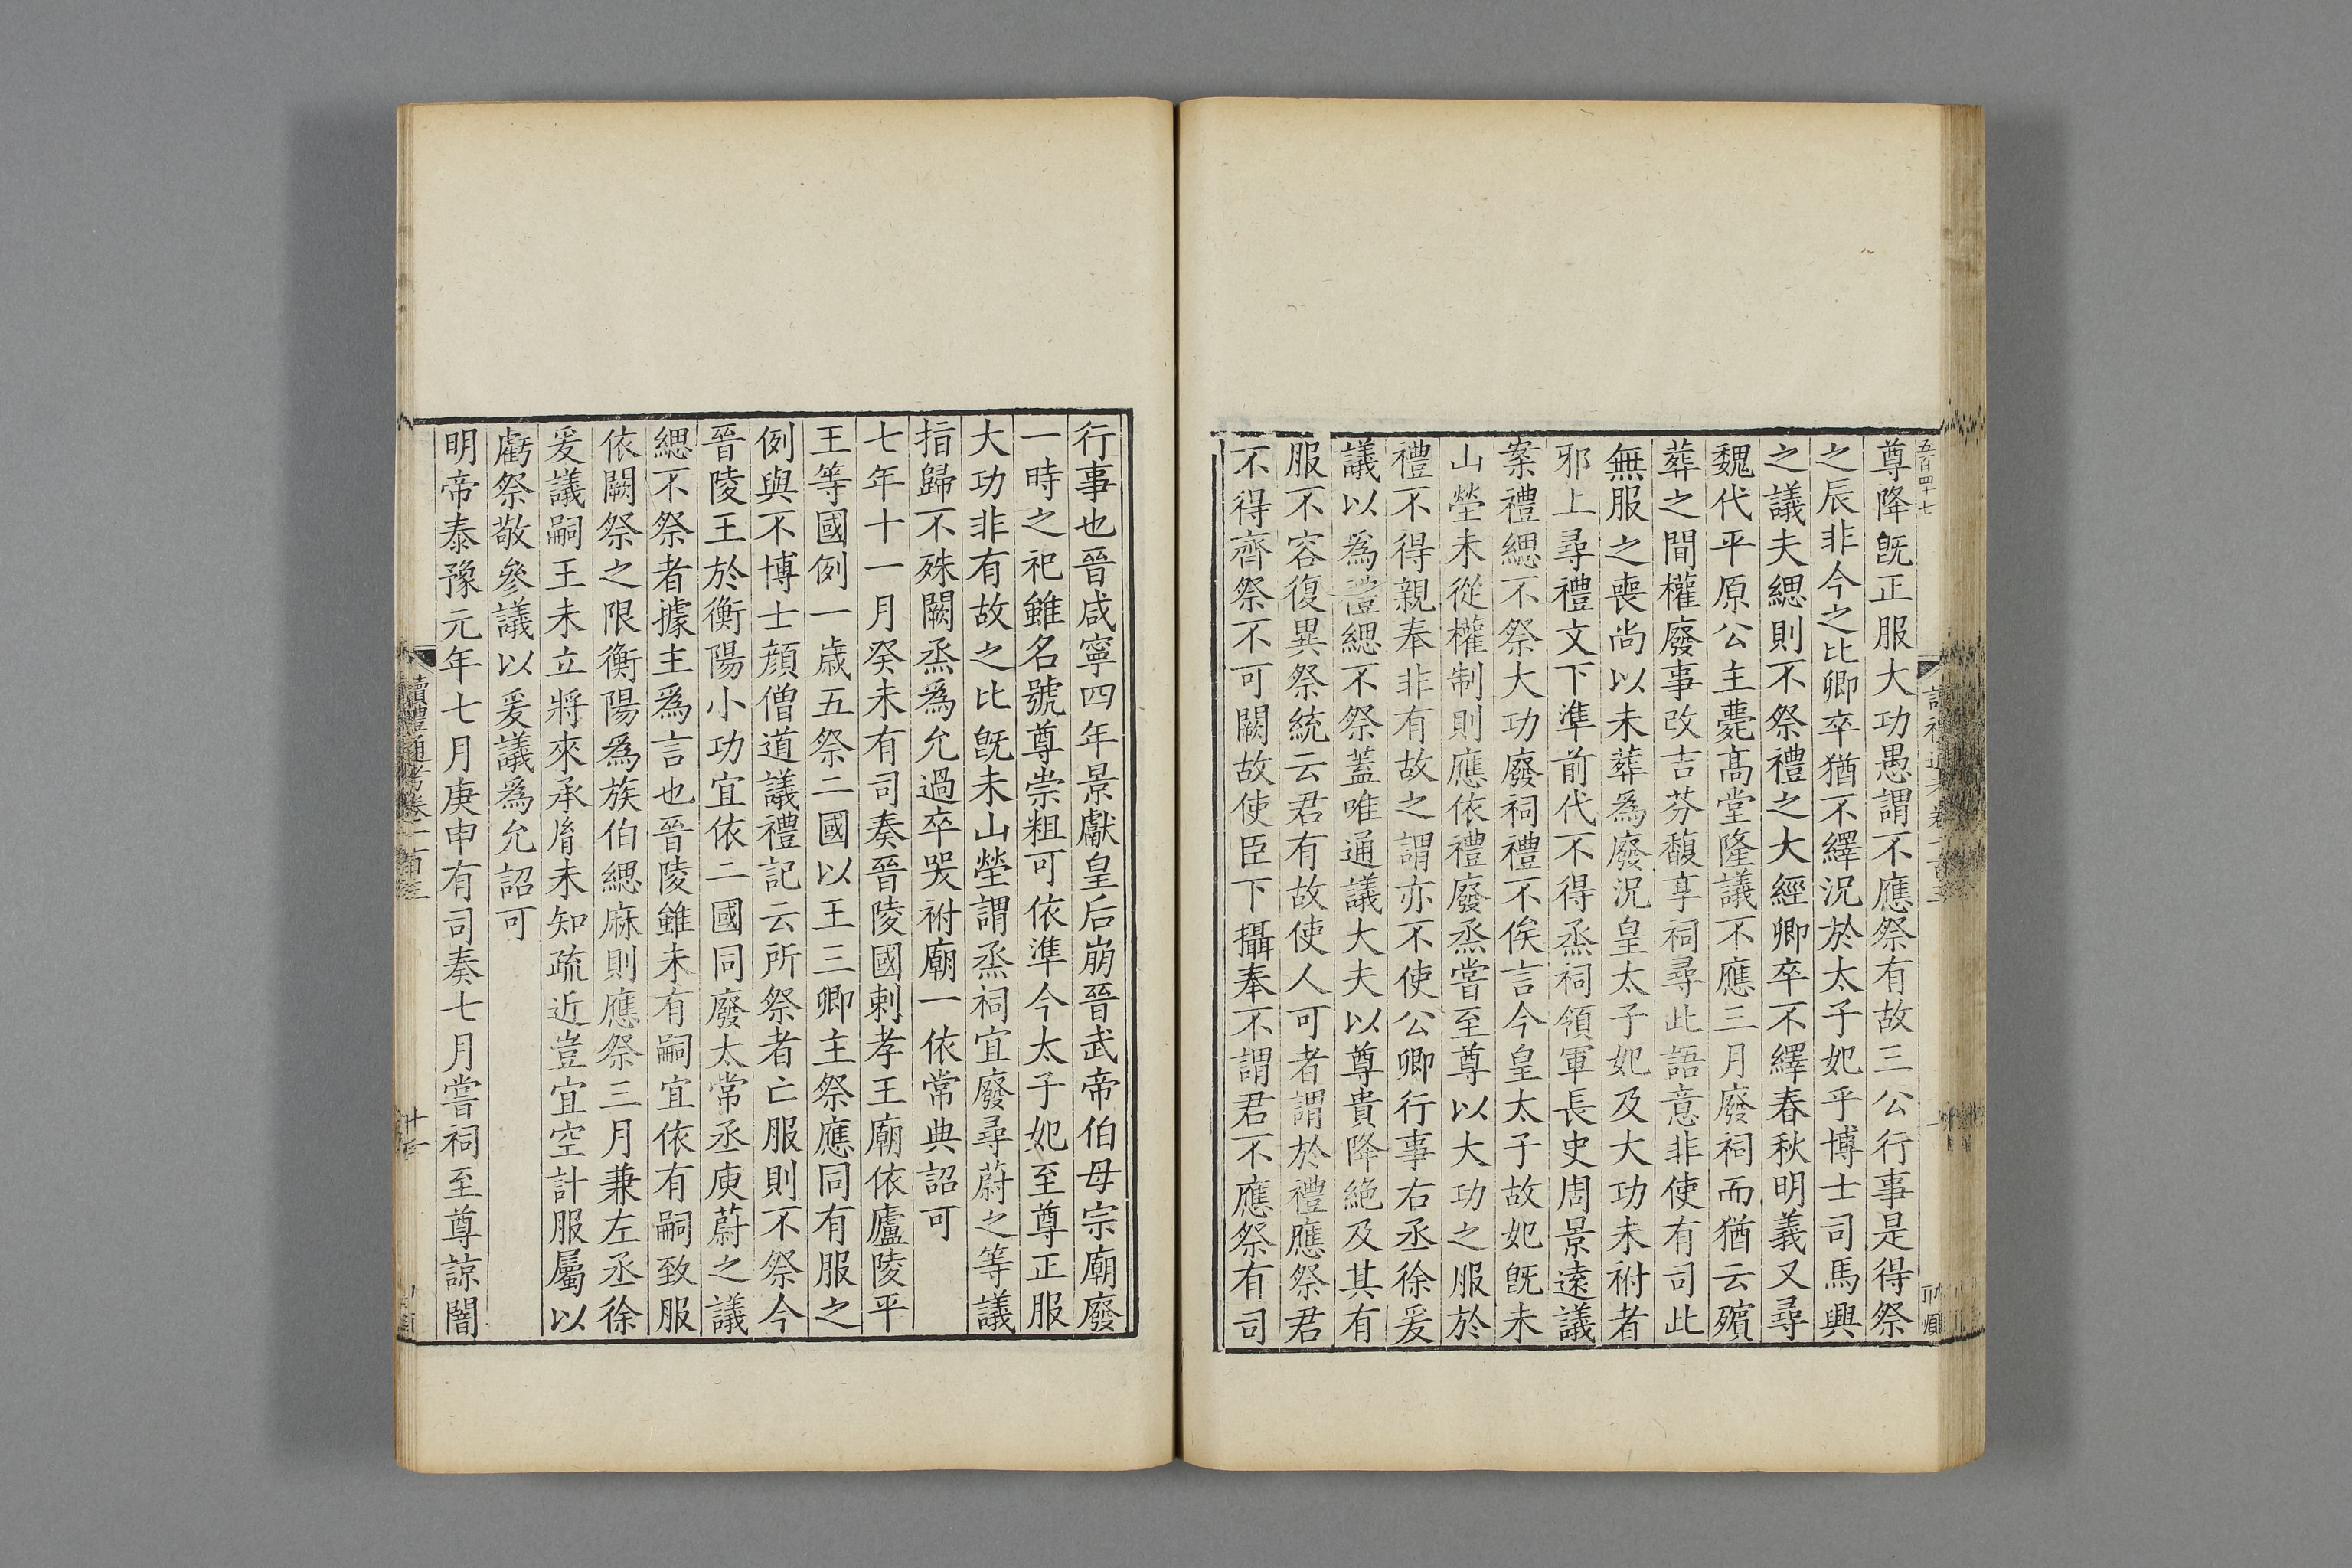 五百四十七
尊降旣正服大功愚謂不應祭有故三公行事是得祭
之辰非今之比卿卒猶不繹況於太子妃乎博士司馬興
之議夫緦則不祭禮之大經卿卒不繹春秋明義又尋
魏代平原公主薨高堂隆議不應三月廢祠而猶云殯
葬之間權廢事改吉芬馥享祠尋此語意非使有司此
無服之喪尚以未葬爲廢況皇太子妃及大功未祔者
邪上尋禮文下準前代不得烝祠領軍長史周景遠議
案禮緦不祭大功廢祠禮不俟言今皇太子故妃旣未
山塋未從權制則應依禮廢烝嘗至尊以大功之服於
禮不得親奉非有故之謂亦不使公卿行事右丞徐爰
議以爲禮緦不祭蓋唯通議大夫以尊貴降絕及其有
服不容復異祭統云君有故使人可者謂於禮應祭君
不得齊祭不可闕故使臣下攝奉不謂君不應祭有司
行事也晉咸寧四年景獻皇后崩晉武帝伯母宗廟廢
一時之祀雖名號尊崇粗可依準今太子妃至尊正服
大功非有故之比旣未山塋謂烝祠宜廢尋蔚之等議
指歸不殊闕烝爲允過卒哭祔廟一依常典詔可
七年十一月癸未有司奏晉陵國剌孝王廟依廬陵平
王等國例一歳五祭二國以王三卿主祭應同有服之
例與不博士顔僧道議禮記云所祭者亡服則不祭今
晉陵王於衡陽小功宜依二國同廢太常丞庾蔚之議
緦不祭者據主爲言也晉陵雖未有嗣宜依有嗣致服
依闕祭之限衡陽爲族伯緦麻則應祭三月兼左丞徐
爰議嗣王未立將來承胤未知疏近豈宜空計服屬以
虧祭敬參議以爰議爲允詔可
明帝泰豫元年七月庚申有司奏七月嘗祠至尊諒闇
讀禮通考卷一百十三